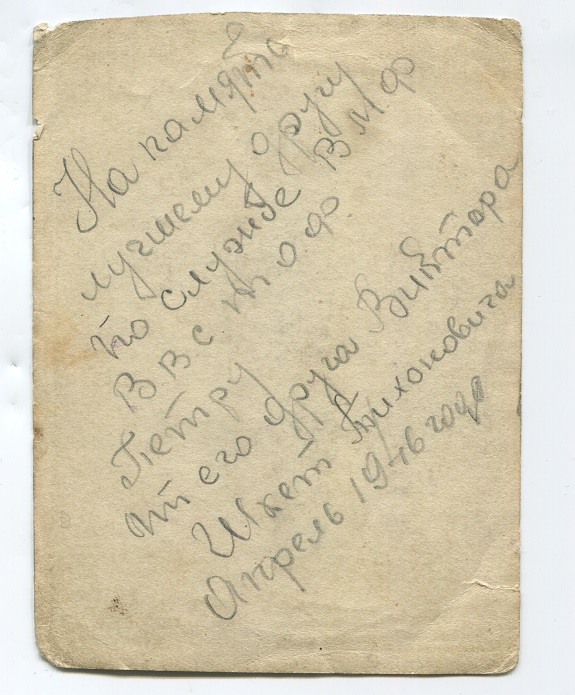 На память
лучшему другу
по службе ВМФ
ВВС ТОФ
Петру
от его друга Виктора
Шкет Тихоновича
Апрель 1946 года